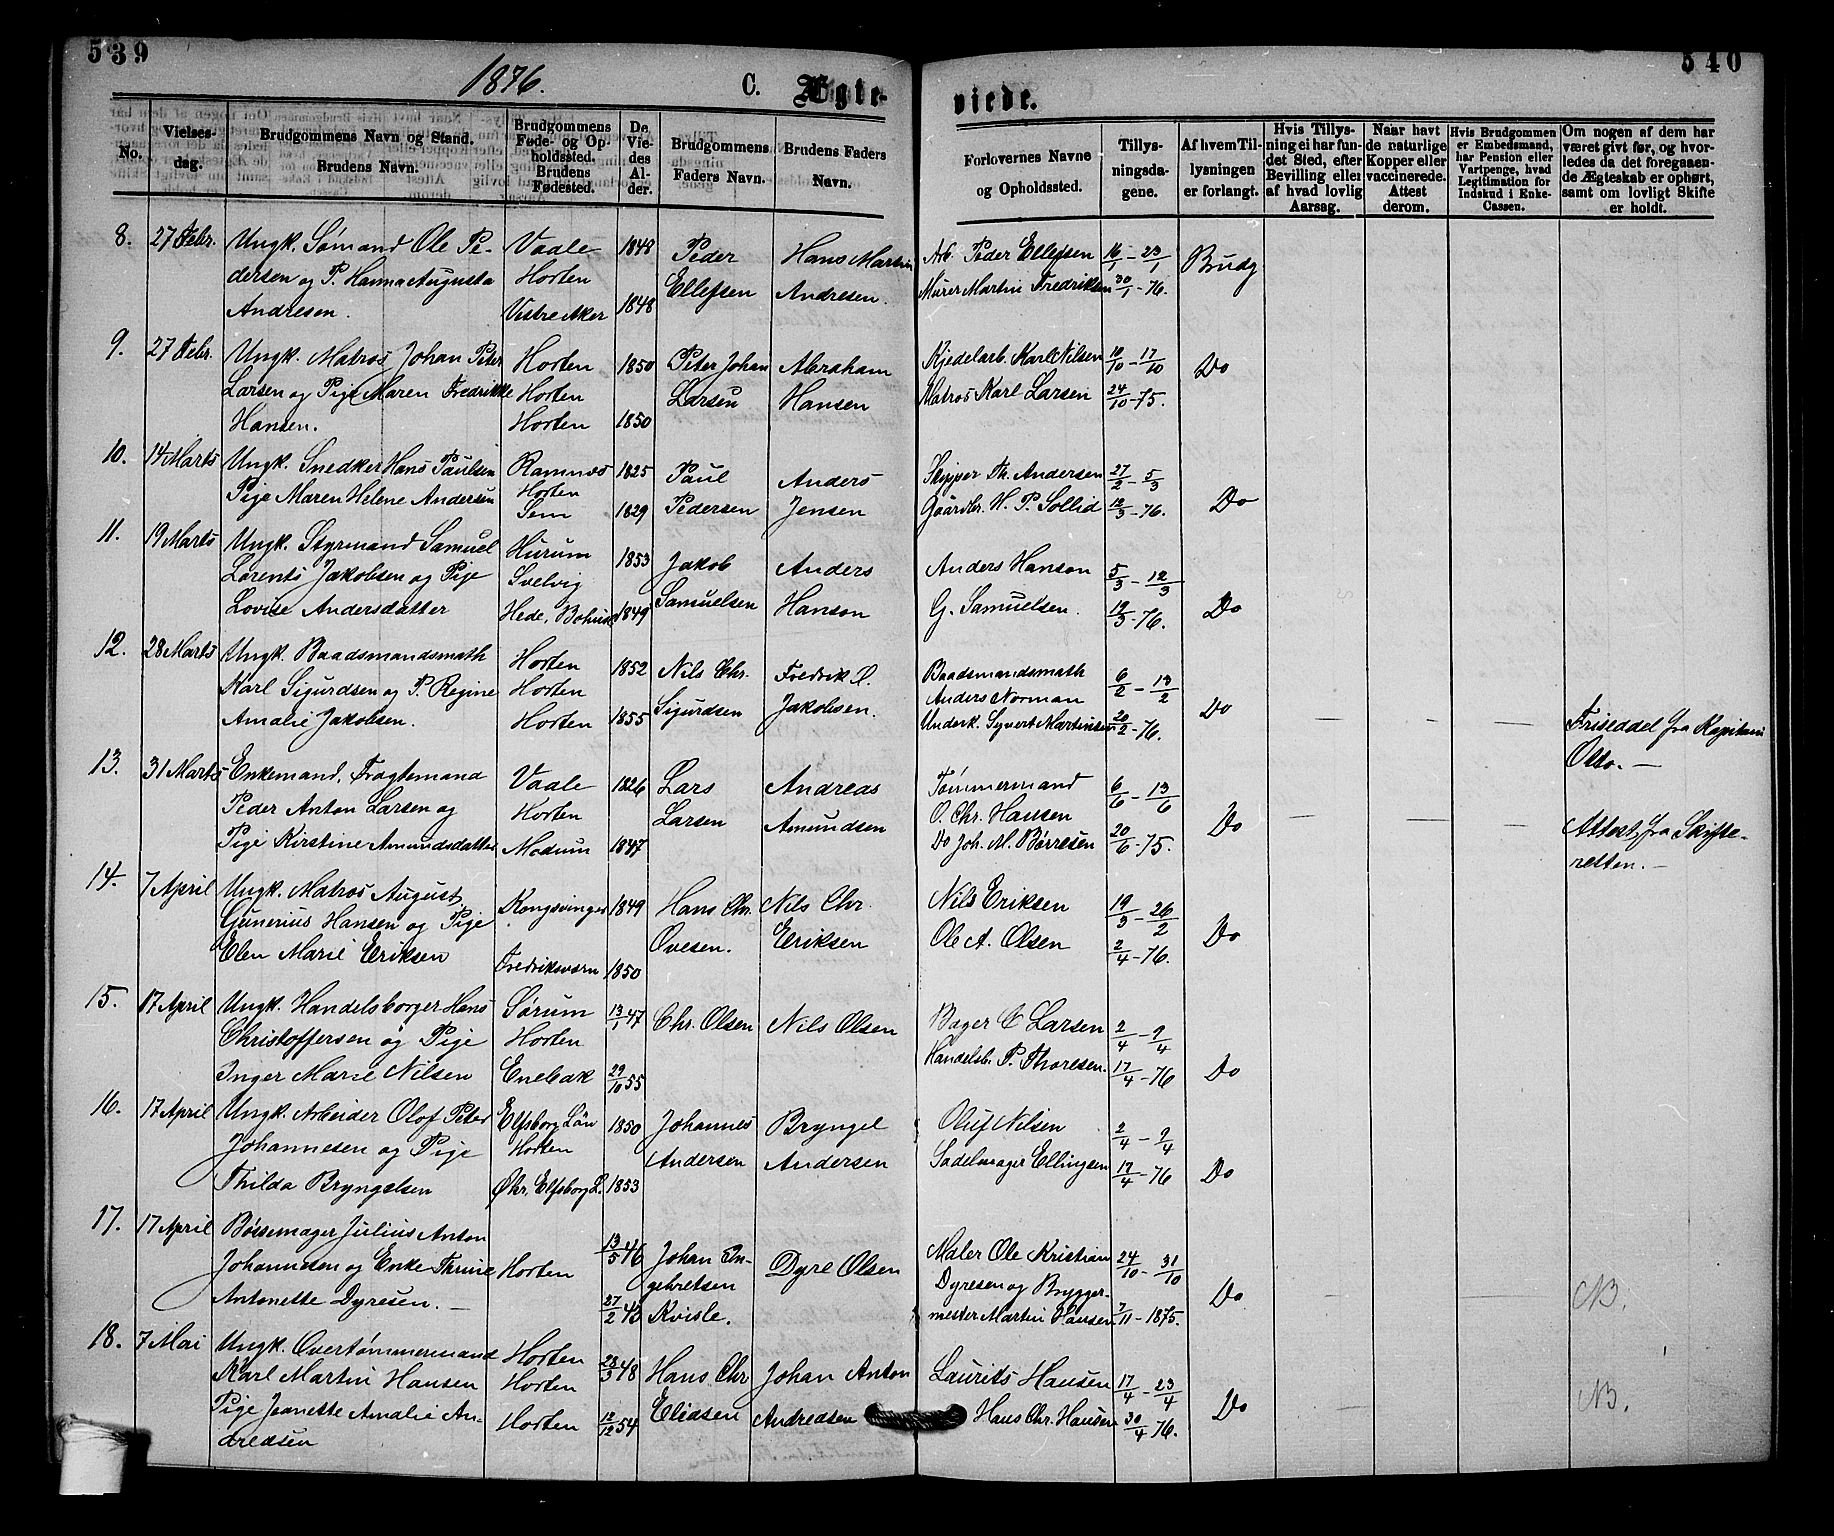 539
540
1876.
C. Ægte-
viede.
No.
Vielses-
dag.
Brudgommens Navn og Stand.
Brudens Navn.
Brudgommens
Føde- og Op-
holdssted.
Brudens
Fødested.
De
Vie-
des
Al-
der.
Brudgommens
Faders Navn.
Brudens Faders
Navn.
Forlovernes Navne
og Opholdssted.
Tillys-
ningsda-
gene.
Af hvem Til-
lysningen
er forlangt.
Hvis Tillys-
ning ei har fun-
det Sted, efter
Bevilling eller
af hvad lovlig
Aarsag.
Naar havt
de naturlige
Kopper eller
vaccinerede.
Attest
derom.
Hvis Brudgommen
er Embedsmand,
har Pension eller
Vartpenge, hvad
Legitimation for
Indskud i Enke-
Cassen.
Om nogen af dem har
været givt før, og hvor-
ledes da det foregaaen-
de Ægteskab er ophørt,
samt om lovligt Skifte
er holdt.
8. 27 Febr. Ungk. Sømand Ole Pe- Vaale 1848 Peder Hans Martin Arb. Peder Ellefsen 16/1 - 23/1 Brudg
dersen og P. Hanna Augusta Horten Ellefsen Andresen. Murer Martin Fredriksen 30/1 - 76.
Andresen. Vestre Aker 1848
9. 27 Febr. Ungk. Matros Johan Peter Horten 1850 Peter Johan Abraham Kjedelarb. Karl Nilsen 10/10 - 17/10 Do
Larsen og Pige Maren Fredrikke Horten Larsen Hansen Matros Karl Larsen 24/10 - 75.
Hansen. Horten 1850
10. 14 Marts Ungk. Snedker Hans Paulsen Ramnes 1825 Paul Anders Skipper Th. Andersen 27/2 - 5/3
Pige Maren Helene Andersen Horten Sem 1829 Pedersen Jensen Gaardbr. H. P. Sollid 12/3 - 76. Do
11. 19 Marts Ungk. Styrmand Samuel Hurum 1853 Jakob Anders Anders Hanson 5/3 - 12/3
Lorents Jakobsen og Pige Svelvig Samuelsen Hanson G. Samuelsen. 19/3 - 76. Do
Lovise Andersdatter Hede, Bohus 1849
12. 28 Marts Ungk. Baadsmandsmath Horten 1852 Nils Chr. Fredrik O. Baadsmandsmath 6/2 - 13/2
Karl Sigurdsen og P. Regine Horten Sigurdsen Jakobsen. Anders Norman Do
Amalie Jakobsen. Horten 1855 Underk. Syvert Martinsen 20/2 - 76. — — — Friseddel fra Kapitain
Otto. —
13. 31 Marts Enkemand, Fragtemand Vaale 1826 Lars Andreas Tømmermand 6/6 - 13/6
Peder Anton Larsen og Horten Larsen Amundsen O. Chr. Hansen Do — — — Attest fra Skifte-
Pige Kirstine Amundsdatter Modum 1847 Do Joh. M. Børresen 20/6 - 75. retten. —
14. 7 April Ungk. Matros August Kongsvinger 1849 Hans Chr. Nils Chr. Nils Eriksen 19/3 - 26/2
Gunerius Hansen og Pige Ovesen. Eriksen Ole A. Olsen 2/4 - 76. Do
Elen Marie Eriksen Fredriksværn 1850
15. 17 April Ungk. Handelsborger Hans Sørum 13/1 47 Chr. Olsen Nils Olsen Bager C Larsen 2/4 - 9/4
Christoffersen og Pige Horten Handelsb. P. Thoresen. 17/4 - 76 Do
Inger Marie Nilsen Enebak 29/10 55
16. 17 April Ungk. Arbeider Olof Peter Elfsborg Län 1850 Johannes Bryngel Oluf Nilsen 2/4 - 9/4
Johannesen og Pige Horten Andersen Andersen Sadelmager Ellingsen 17/4 - 76 Do
Thilda Bryngelsen Øhr, Elfsborg L. 1853
17. 17 April Bøssemager Julius Anton 13/5 46 Johan En- Dyre Olsen Maler Ole Kristian 24/10 - 31/10
Johannesen og Enke Thrine Horten gebretsen Dyresen og Brygger- Do — — NB.
Antonette Dyresen. — 27/2 43 Kvisle. mester Martin Hansen 7/11 - 1875.
18. 7 Mai Ungk. Overtømmermand Horten 28/3 48 Hans Chr Johan Anton Laurits Hansen 17/4 - 23/4
Karl Martin Hansen Horten Elidsen Andredsen Hans Chr. Hansen 30/4 - 76. Do NB.
Pige Jeanette Amalie An- Horten 12/12 54
dredsen